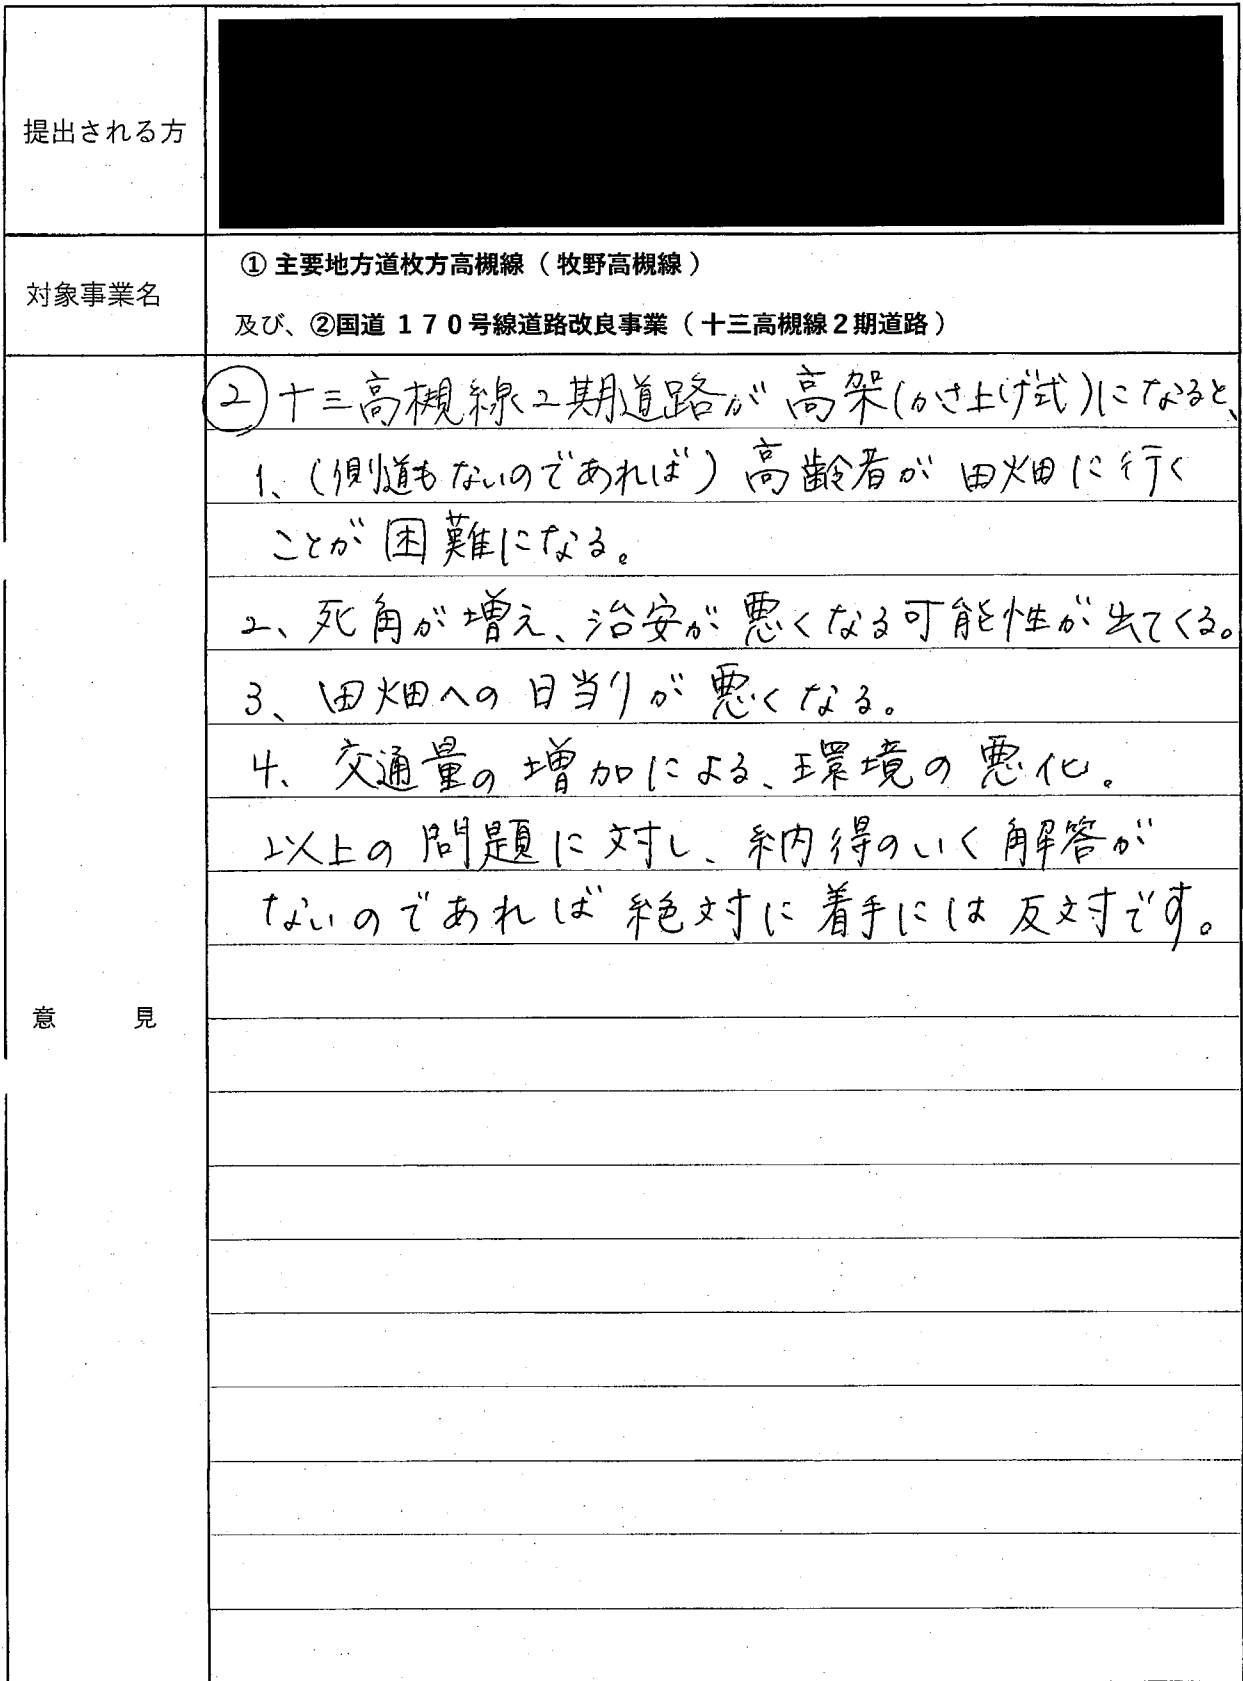 提出される方
対象事業名
① 主要地方道枚方高槻線（牧野高槻線）
及び、②国道１７０号線道路改良事業（十三高槻線２期道路）
意見
② 十三高槻線2期道路が高架(かさ上げ式)になると、
1、(側道もないのであれば)高齢者が田畑に行く
ことが困難になる。
2、死角が増え、治安が悪くなる可能性が出てくる。
3、田畑への日当りが悪くなる。
4、交通量の増加による、環境の悪化。
以上の問題に対し、納得のいく解答が
ないのであれば絶対に着手には反対です。